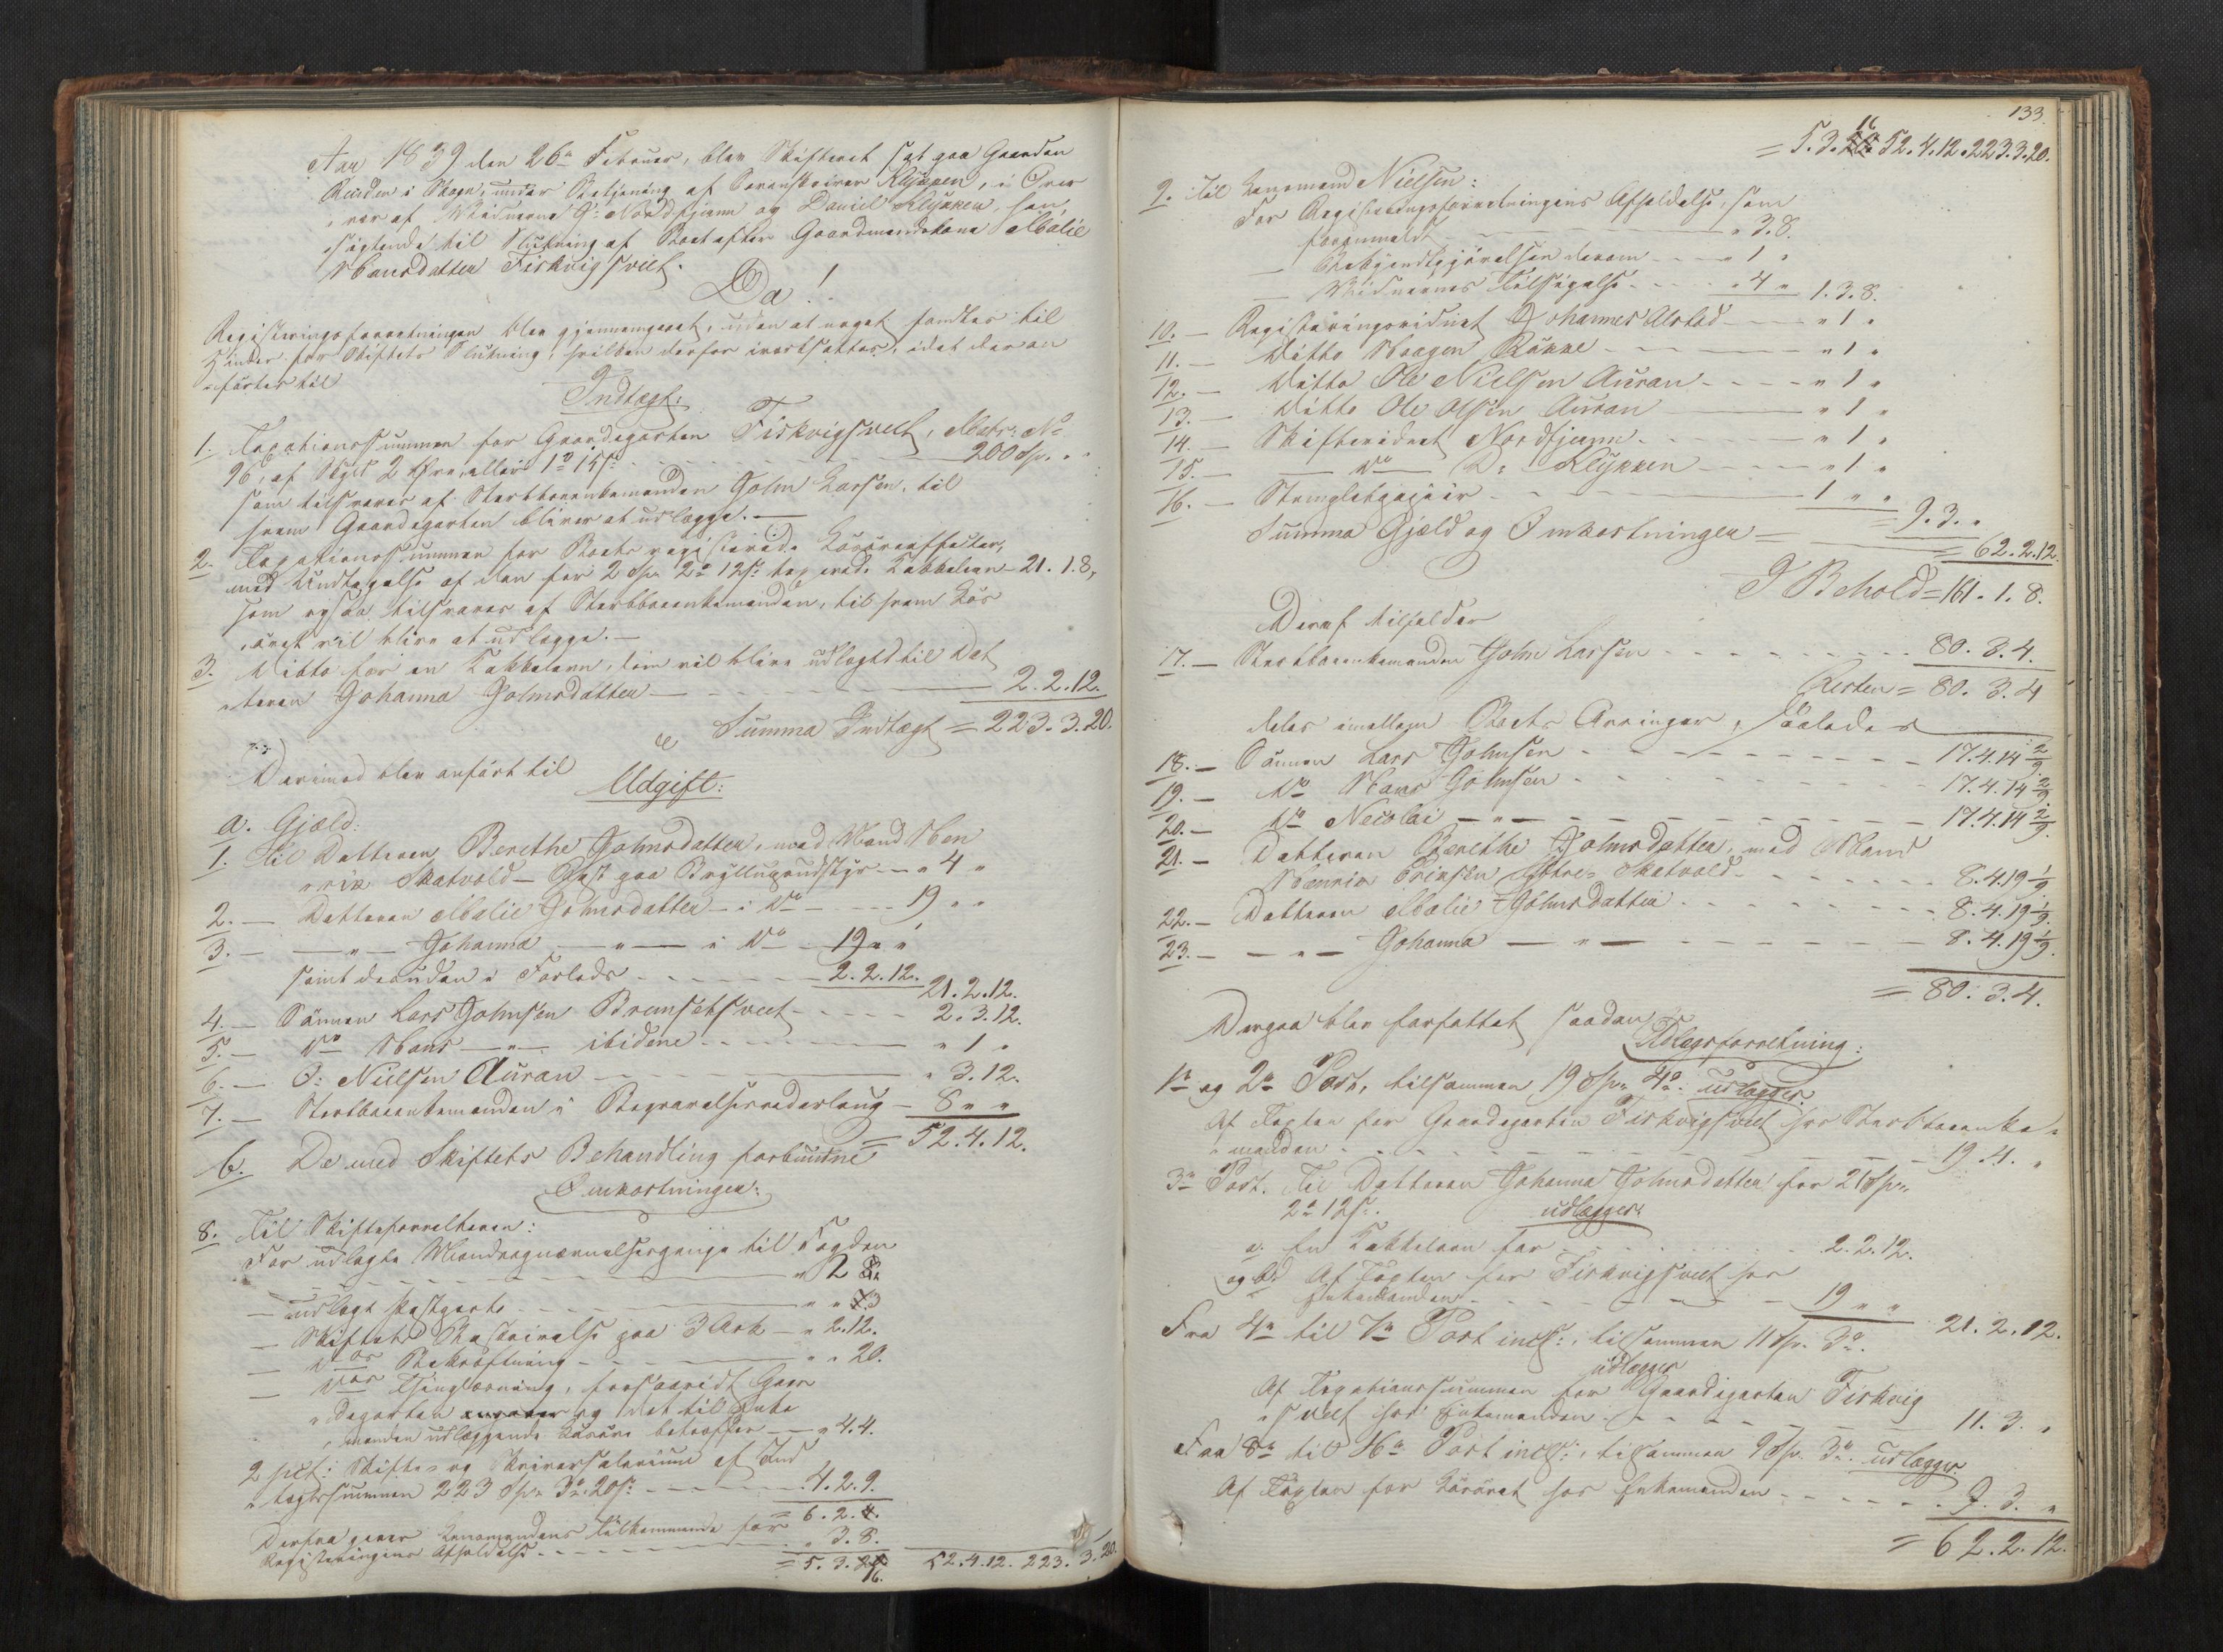 Aar 1839 den 26de Februar, blev Skifteret sat paa Gaarden
Reinden i Skogn, under Betjening af Sorenskriver Klykken, i Over
vær af Vidnerne G: Nordfjærn og Daniel Klykken, hen
sigtende til Slutning af Boet efter Gaardmandskone Malie
Hansdatter Fiskvigsveet.
Da!
Registeringsforretningen blev gjennemgaaet, uden at noget fandtes til
Hinder for Skiftets Slutning, hvilken derfor iværksattes, idet der an
førtes til
Indtægt:
1. Taxationssummen for Gaardeparten Fiskvigsveet, Matr: No
96, af Skyld 2 Øre, eller 1 D 15 s: 200 Sp. " "
som tilsvares af Sterbboenkemanden John Larsen, til
hvem Gaardeparten bliver at udlægge. —
2. Taxationssummen for Boets registerede Løsøreeffecter,
med Undtagelse af den for 2 Sp. 2 D 12 s. taxerede Kakkelovn 21. 1. 8,
som ogsaa tilsvares af Sterbboenkemanden, til hvem Løs
øret vil blive at udlægge. —
3. Ditto for en Kakkelovn, som vil blive udlagt til Dat
teren Johanna Johnsdatter 2. 2. 12.
Summa Indtægt = 223. 3. 20.
Derimod blev anført til
Udgift:
a. Gjæld:
1. Til Datteren Berethe Johnsdatter, med Mand Hen
rik Skatvold – Rest paa Bryllupsudstyr - " 4 "
2. — Datteren Malie Johnsdatter – i Do — 19 " "
3. — — " — Johanna — " — i Do – 19 " "
samt desuden i Forlods 2. 2. 12. 21. 2. 12.
4. — Sønnen Lars Johnsen Bremsetsveet 2. 3. 12.
5. — Do Hans — " — ibidem " 1 "
6. — O: Nielsen Auran " 3. 12.
7. — Sterbboenkemanden i Begravelsesvederlaug – 8 " "
= 52. 4. 12.
b. De med Skiftets Behandling forbundne
Omkostninger:
8. Til Skifteforvalteren:
For udlagte penge til Fogden
" 2 8.
— udlagt Postporto " " 3
— Skiftets Beskrivelse paa 3 Ark – " 2. 12.
— Dos Bekræftning " " 20.
— Dos Thinglæsning, forsaavidt Gaar
departen og det til Enke
manden udlæggende Løsøre betræffer " 4. 4.
2 pCt: Skifte- og Skriversalarium af Ind
tægtssummen 223 Sp. 3 D 20 s: 4. 2. 9.
= 6. 2.
Derfra gaaer Lensmandens Tilkommende for
Registeringens Afholdelse " 3. 8.
= 5. 3. 16. 52. 4. 12. 223. 3. 20.
133.
= 5. 3. 16 52. 4. 12. 223. 3. 20.
9. Til Lensmand Nielsen:
For Registeringsforretningens Afholdelse, som
foranmeldt " 3. 8.
— Bekjendtgjørelsen derom " 1 "
— Vidnernes Tilsigelse " 4 " 1. 3. 8.
10. — Registeringsvidnet Johannes Alstad " 1 "
11. — Ditto Haagen Røkke " 1 "
12. — Ditto Ole Nielsen Auran " 1 "
13. — Ditto Ole Olsen Auran " 1 "
14. — Skiftevidnet Nordfjærn " 1 "
15. — — Do — D: Klykken " 1 "
16. — Stempletpapir 1 " "
= 9. 3. "
Summa Gjæld og Omkostninger = = 62. 2. 12.
I Behold = 161. 1. 8.
Deraf tilfalder
17. — Sterbboenkemanden John Larsen 80. 3. 4.
Resten = 80. 3. 4
deles imellem Boets Arvinger, saaledes
18. — Sønnen Lars Johnsen 17. 4. 14 2/9
19. — Do Hans Johnsen 17. 4. 14 2/9
20. — Do Nicolai — " — 17. 4. 14 2/9.
21. — Datteren Berethe Johnsdatter, med Mand
Henrik Eriksen Skatvold 8. 4. 19 1/9
22. — Datteren Malie Johnsdatter 8. 4. 19 1/9.
23. — — " — Johanna — " — 8. 4. 19 1/9.
= 80. 3. 4.
Derpaa blev forfattet saadan
Udlægsforretning:
1te og 2de Post, tilsammen 19 Sp. 4 D. udlægges.
Af Taxten for Gaardeparten Fiskvigsveet hos Sterbboenke-
manden 19. 4. "
3de Post. Til Datteren Johanna Johnsdatter for 21 Sp.
2 D 12 s. udlægges:
a. En Kakkelovn for 2. 2. 12.
og b. Af Taxten for Fiskvigsveet hos
Enkemanden 19 " "
21. 2. 12.
Fra 4de til 7de Post incl:, tilsammen 11 Sp. 3 D.
udlægges
Af Taxationssummen for Gaardeparten Fiskvig
sveet hos Enkemanden 11. 3. "
Fra 8de til 16de Post incl:, tilsammen 9 Sp. 3 D. udlægges
Af Taxten for Løsøret hos Enkemanden 9. 3. "
= 62. 2. 12.